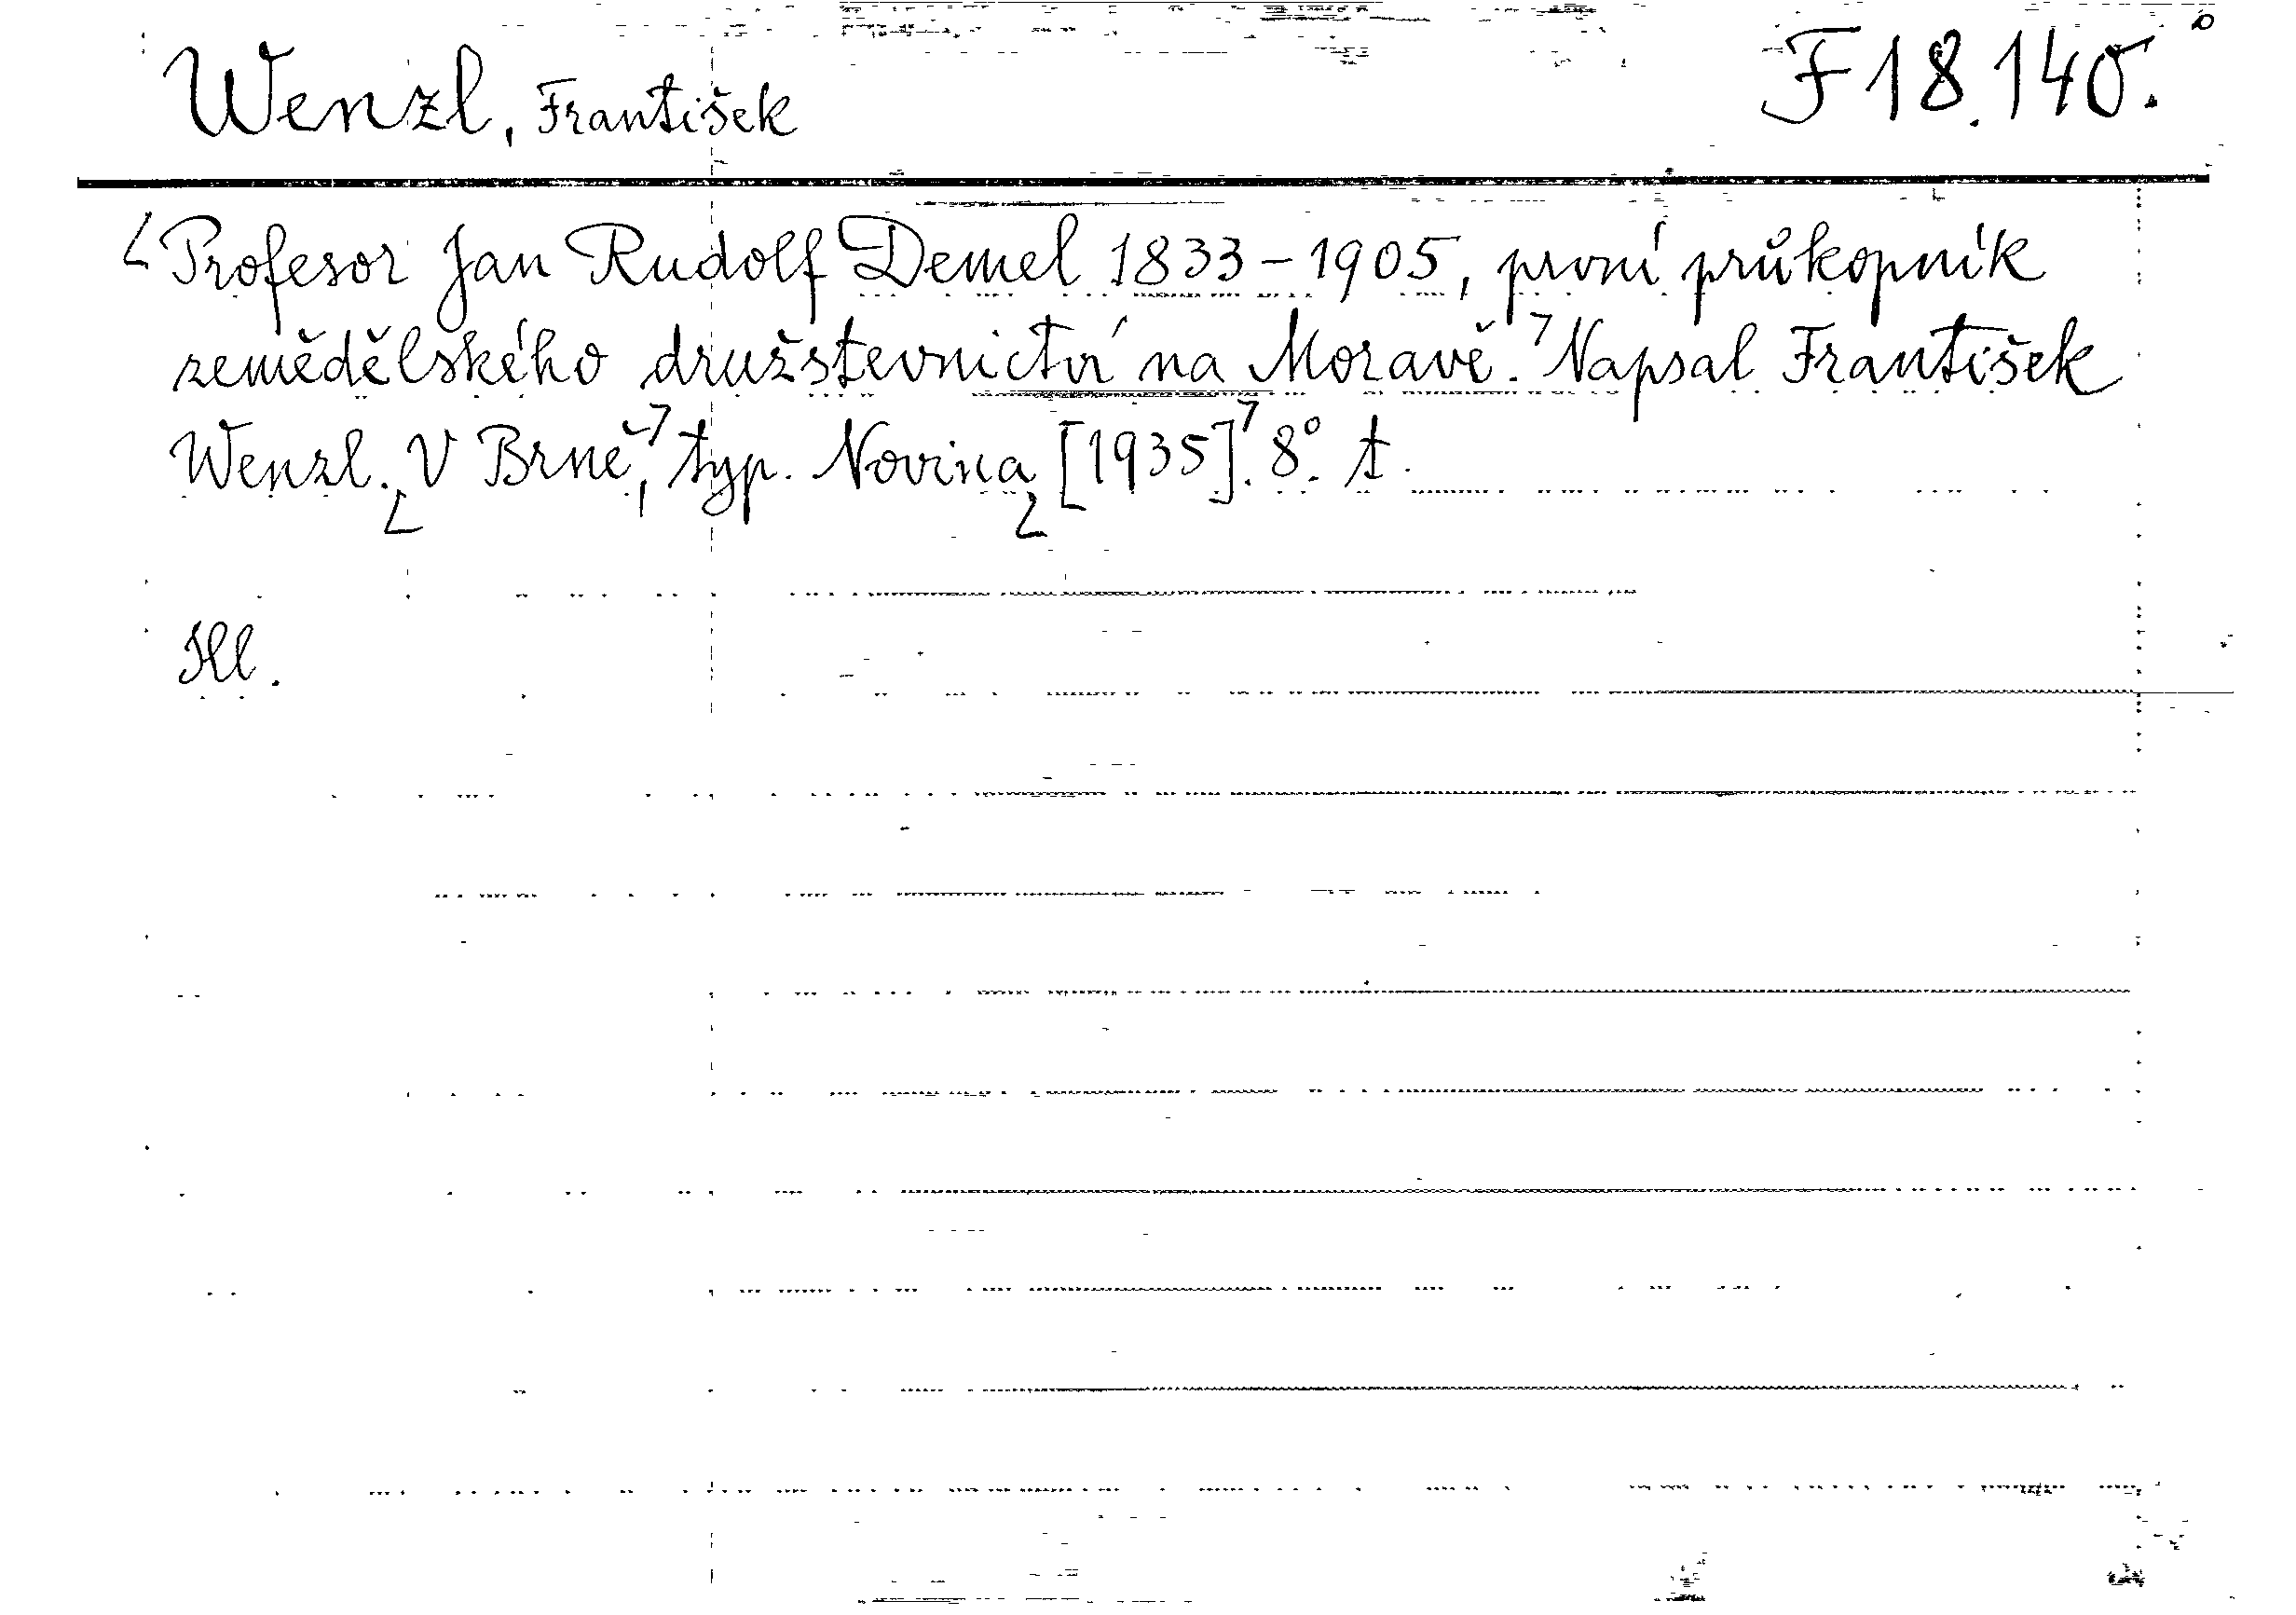 Wenzl, František F 18.140.
Profesor Jan Rudolf Demel 1833-1905, první průkopník
zemědělského družstevnictví na Moravě. Napsal František
Wenzl. V Brně, typ. Novina [1935]. 8°. t.
Hl.